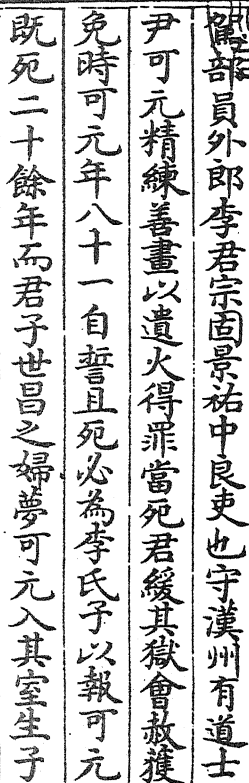 駕部員外郎李君宗固景祐中良吏也守漢州有道士
尹可元精練善畫以遺火得罪當死君緩其獄會赦獲
免時可元年八十一自誓且死必為李氏子以報可元
既死二十餘年而君子世昌之婦夢可元入其室生子